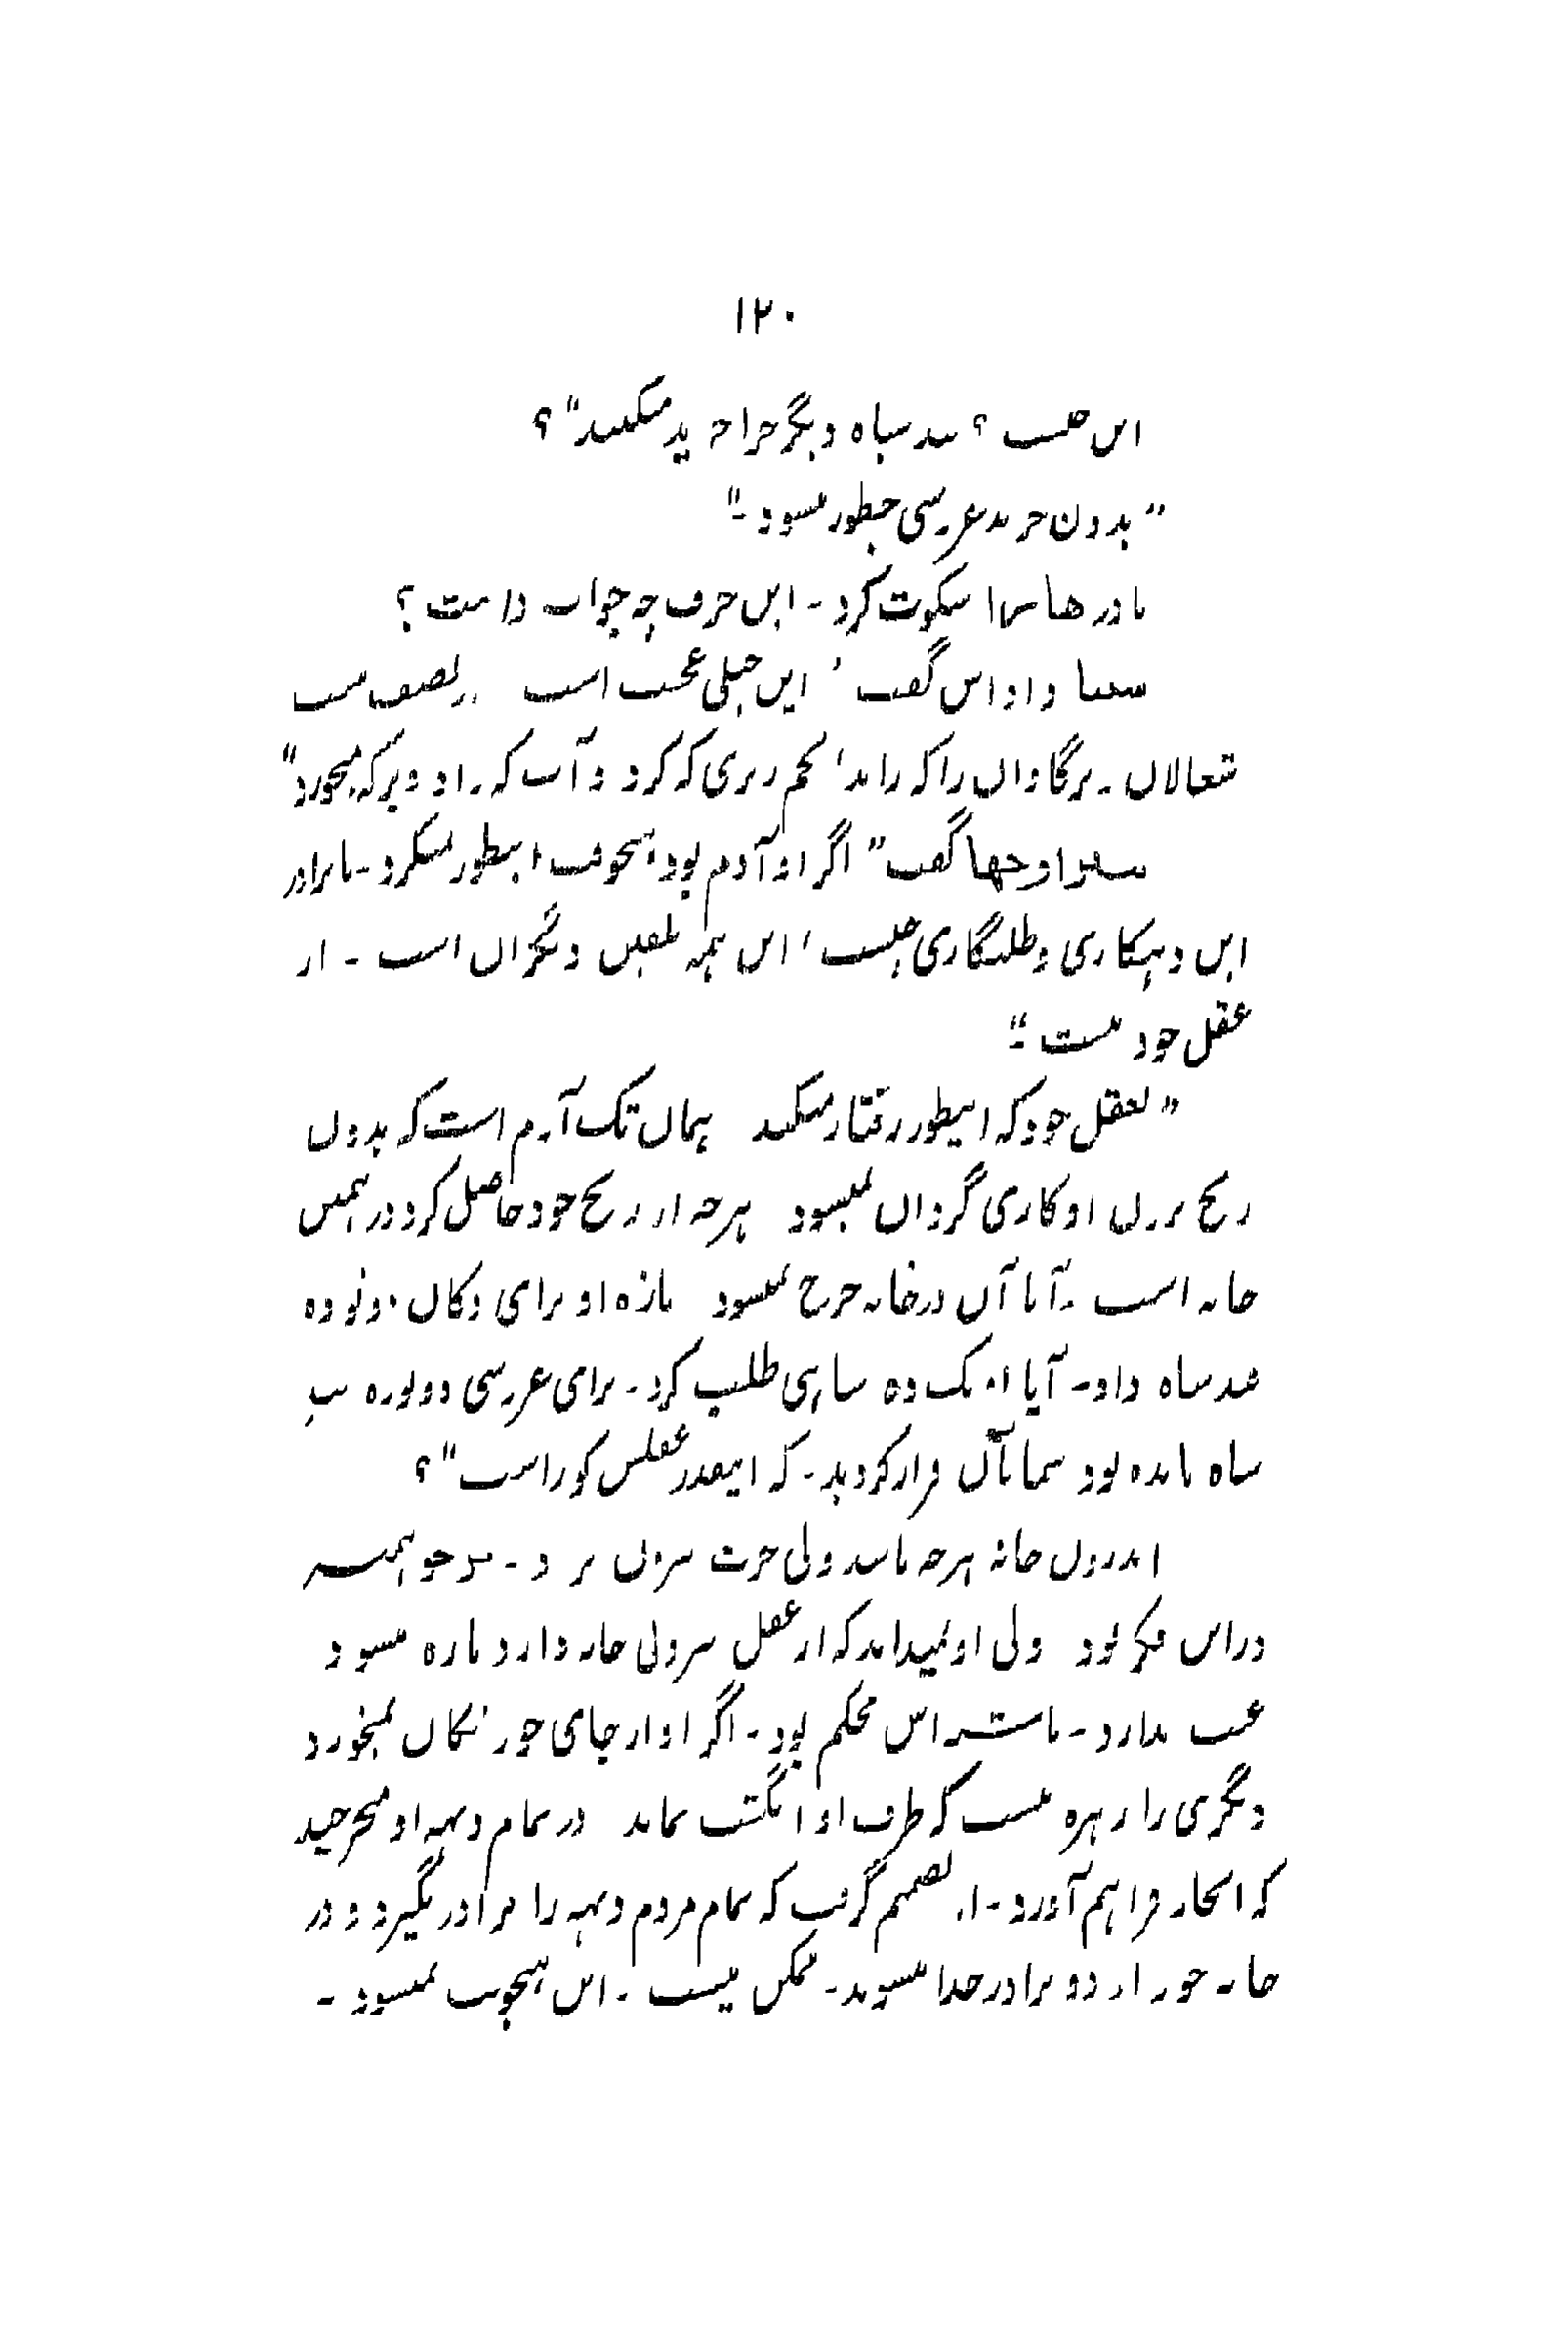 ۱۲۰
این چیست؟ سند سیاه دیگر چرا خرید میکنید"؟
"بدون خرید عرسی چطور میشود۔"
مادر هاسرا سکوت کرد۔ این حرف چه جواب داشت؟
گفت ' این خیلی عجب است نصف شب
شعالان۔ نرگاوان را که راند' تخم ریزی که کرد و آب که داد و برکه میخورد"
گفت" اگر او آدم بود، هیچوقت اینطور نمیکرد۔ با برادر
این دهیکاری و طلبگاری چیست، این همه تلقین دیگران است ۔ از
عقل خود نیست۔"
"بعقل خود که اینطور رفتار میکند همان تک آدم است که بدون
رنج بردن او کاری گردان نمیشود هرچه از رنج خود حاصل کرد در همین
خانه است ۔ آیا آن در خانه خرج نمیشود تازه او برای دکان دو نوده
صد ساه داد۔ آیا از یک ده ساهی طلب کرد۔ برای عرسی دو نوره
ساه مانده بود شما بآن قرار کردید۔ که اینقدر عقلش کور است"؟
اندرون خانه هرچه باشد ولی حرف بیرون نرود۔ همیشه
در این فکر بود ولی او نمیداند که از عقل بیرونی خانه دار دباره میشود
عیب ندارد۔ ماشه اش محکم بود۔ اگر او از جای خود تکان نمیخورد
دیگری را زهره نیست که طرف او انگشت نماید در تمام دهه او میخرچید
که اسخان فراهم آورد۔ او تصمیم گرفت که تمام مردم دهه را برادر بگیرد و در
خانه خود از دو برادر جدا میشوند۔ ممکن نیست ۔ این هیچوقت نمیشود ۔